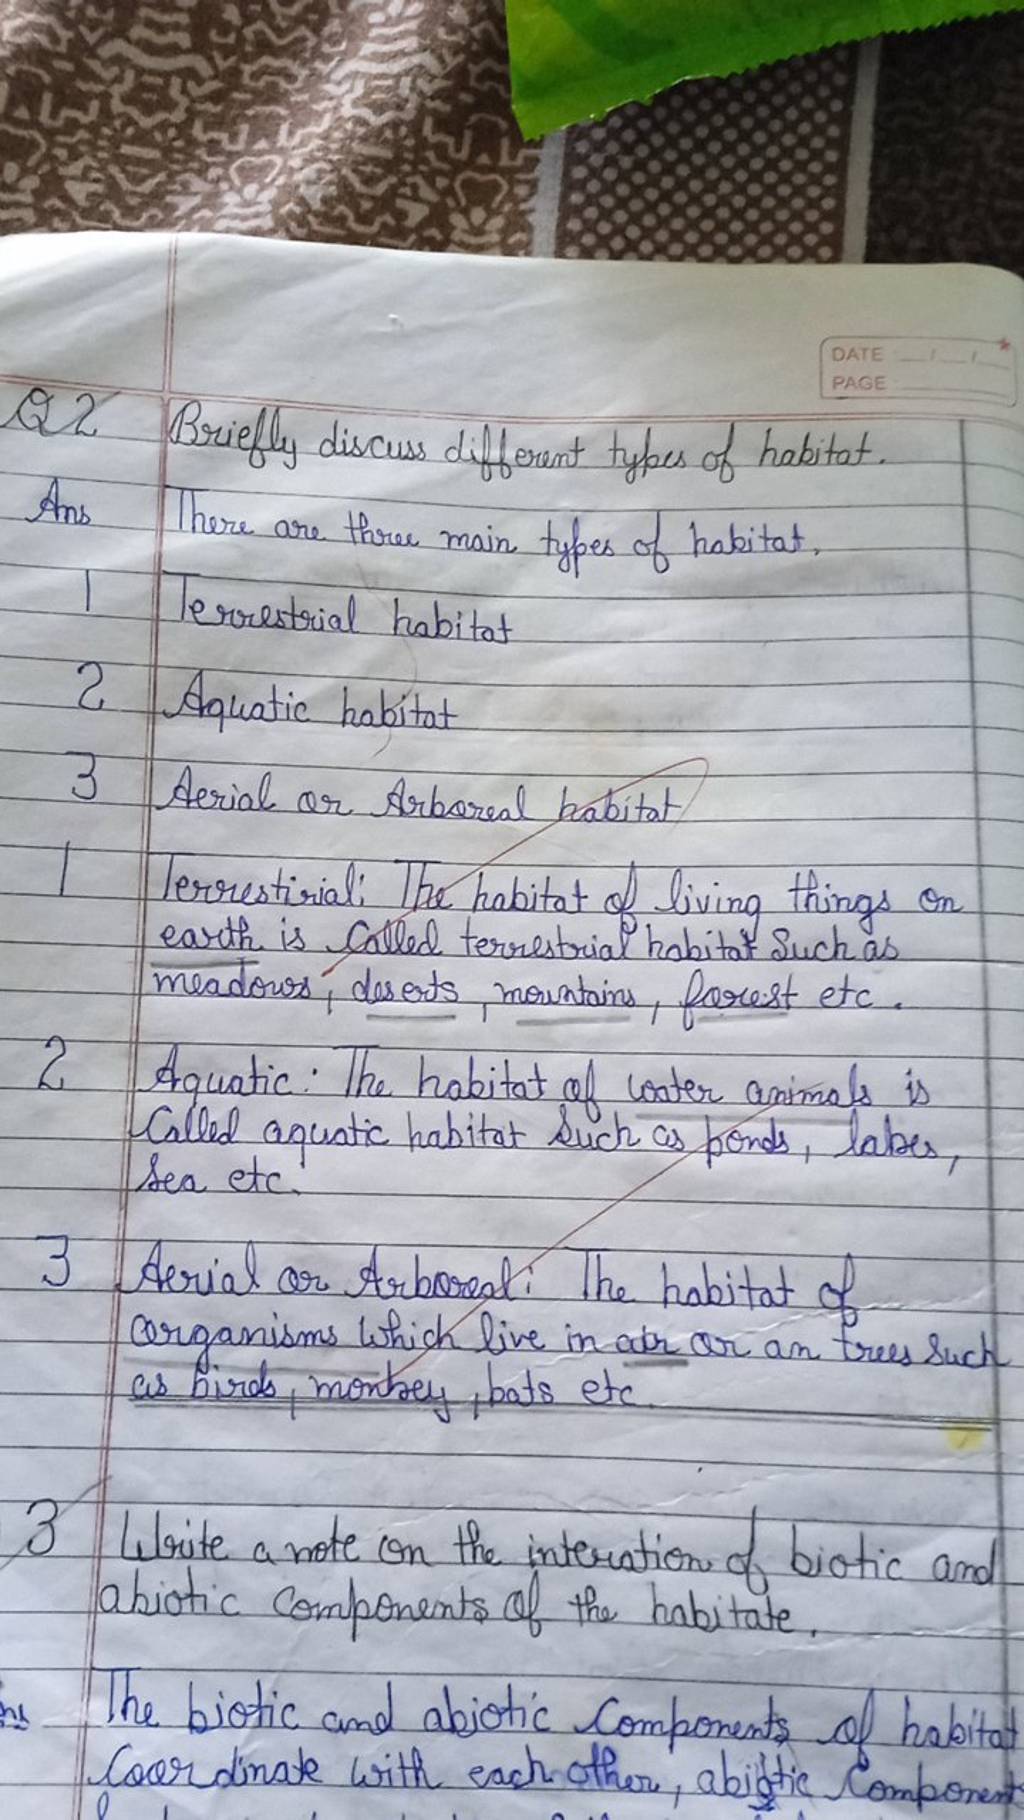 DATE / /
PAGE
Q2 Briefly discuss different types of habitat.
Ans There are three main types of habitat.
1 Terrestrial habitat
2 Aquatic habitat
3 Aerial or Arboreal habitat
1 Terrestirial: The habitat of living things on
earth is called terrestrial habitat Such as
meadows, deserts, mountains, forest etc.
2 Aquatic: The habitat of water animals is
Called aquatic habitat Such as ponds, lakes,
Sea etc.
3 Aerial or Arboreal: The habitat of
organisms which live in air or an trees Such
as birds, monkey, bats etc.
3 Write a note on the interation of biotic and
abiotic Components of the habitate.
ns The biotic and abiotic Components of habitat
Coordinate with each other, abiotic Component